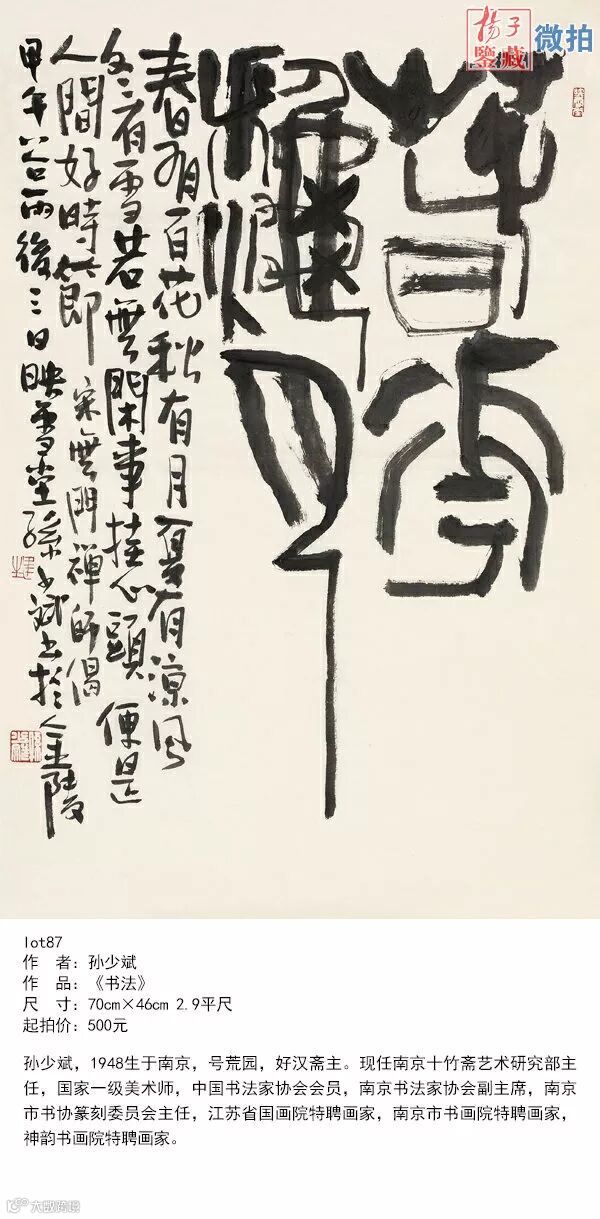 揚子
鑒藏
微拍
春
月
春有百花秋有月夏有涼風
冬有雪若無閑事挂心頭便是
人間好時節 宋無門禪師偈
甲午谷雨後三日映雪堂孫少斌書於金陵
lot87
作 者：孙少斌
作 品：《书法》
尺 寸：70cm×46cm 2.9平尺
起拍价：500元
孙少斌，1948生于南京，号荒园，好汉斋主。现任南京十竹斋艺术研究部主
任，国家一级美术师，中国书法家协会会员，南京书法家协会副主席，南京
市书协篆刻委员会主任，江苏省国画院特聘画家，南京市书画院特聘画家，
神韵书画院特聘画家。
大数跨境